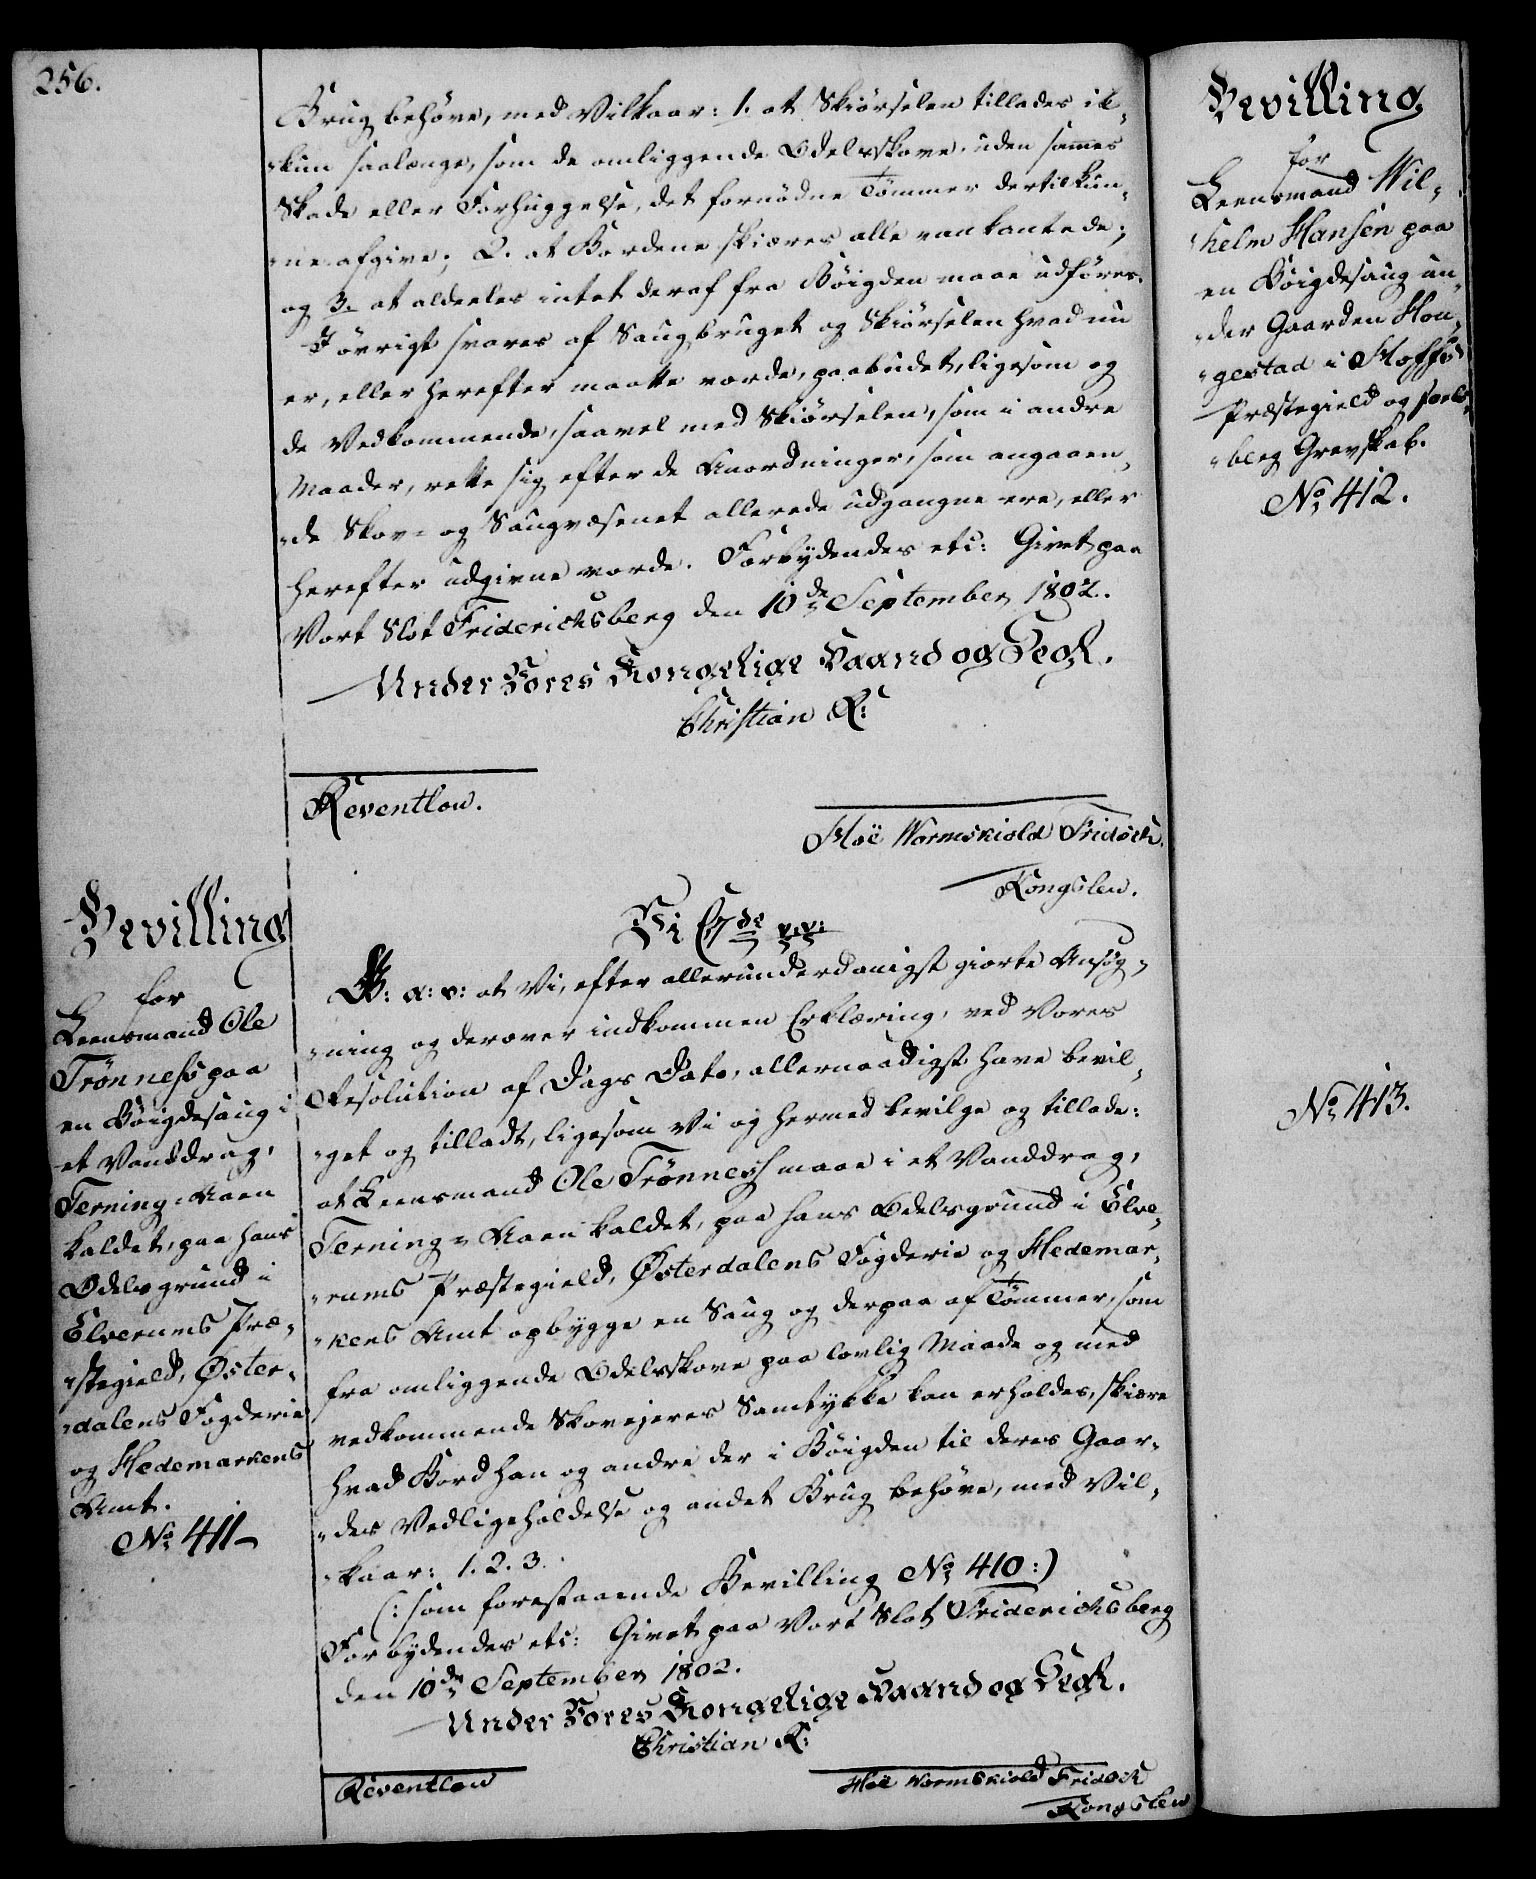 256.
Brug behöve, med Vilkaar: 1. at Skiörselen tillades ik-
-kun saalænge, som de omliggende Odelsskove, uden sammes
Skade eller Forhuggelse, det fornødne Tömmer dertil kun-
-ne afgive; 2. at Bordene skiæres alle vankantede;
og 3. at aldeeles intet deraf fra Böigden maae udföres.
Iövrigt svares af Saugbruget og Skiörselen hvad nu
er, eller herefter maatte vorde, paabudet, ligesom og
de Vedkommende, saavel med Skiörselen, som i andre
Maader, rette sig efter de Anordninger, som angaaen-
-de Skov- og Saugvæsenet allerede udgangne ere, eller
herefter udgivne vorde. Forbydendes etc: Givet paa
Vort Slot Friderichsberg den 10de September 1802.
Under Vores Kongelige Haand og Segl.
Christian R:
Reventlow.
Hoë Wormskiold Fridsch.
Kongslew.
Bevilling
for
Leensmand Ole
Trönness paa
en Böigdesaug i
et Vanddrag,
Terning-Aaen
kaldet, paa hans
Odelsgrund i
Elverums Præ-
-stegield, Øster-
-dalens Fogderie
og Hedemarkens
Amt.
No 411-
Vi C 7de v: v:
G: A: V: at Vi, efter allerunderdanigst giorte Ansög-
-ning og derover indkommen Erklæring, ved Vores
Resolution af Dags Dato, allernaadigst have bevil-
-get og tilladt, ligesom Vi og hermed bevilge og tillade:
at Leensmand Ole Trönness maae i et Vanddrag,
Terning-Aaen kaldet, paa hans Odelsgrund i Elve-
-rums Præstegield, Østerdalens Fogderie og Hedemar-
-kens Amt opbygge en Saug og derpaa af Tömmer, som
fra omliggende Odelsskove paa lovlig Maade og med
vedkommende Skovejeres Samtykke kan erholdes, skiære
hvad Bord han og andre der i Böigden til deres Gaar-
-des Vedligeholdelse og andet Brug behöve, med Vil-
-kaar: 1. 2. 3.
(: som forestaaende Bevilling No 410:)
Forbydendes etc: Givet paa Vort Slot Friderichsberg
den 10de September 1802.
Under Vores Kongelige Haand og Segl.
Christian R:
Reventlow
Hoë Wormskiold Fridsch
Kongslew
Bevilling
for
Leensmand Wil-
-helm Hansen paa
en Böigdesaug un-
-der Gaarden Hou-
-gestad i Hoffs
Præstegield og Jarls-
-berg Grevskab.
No 412.
No 413.